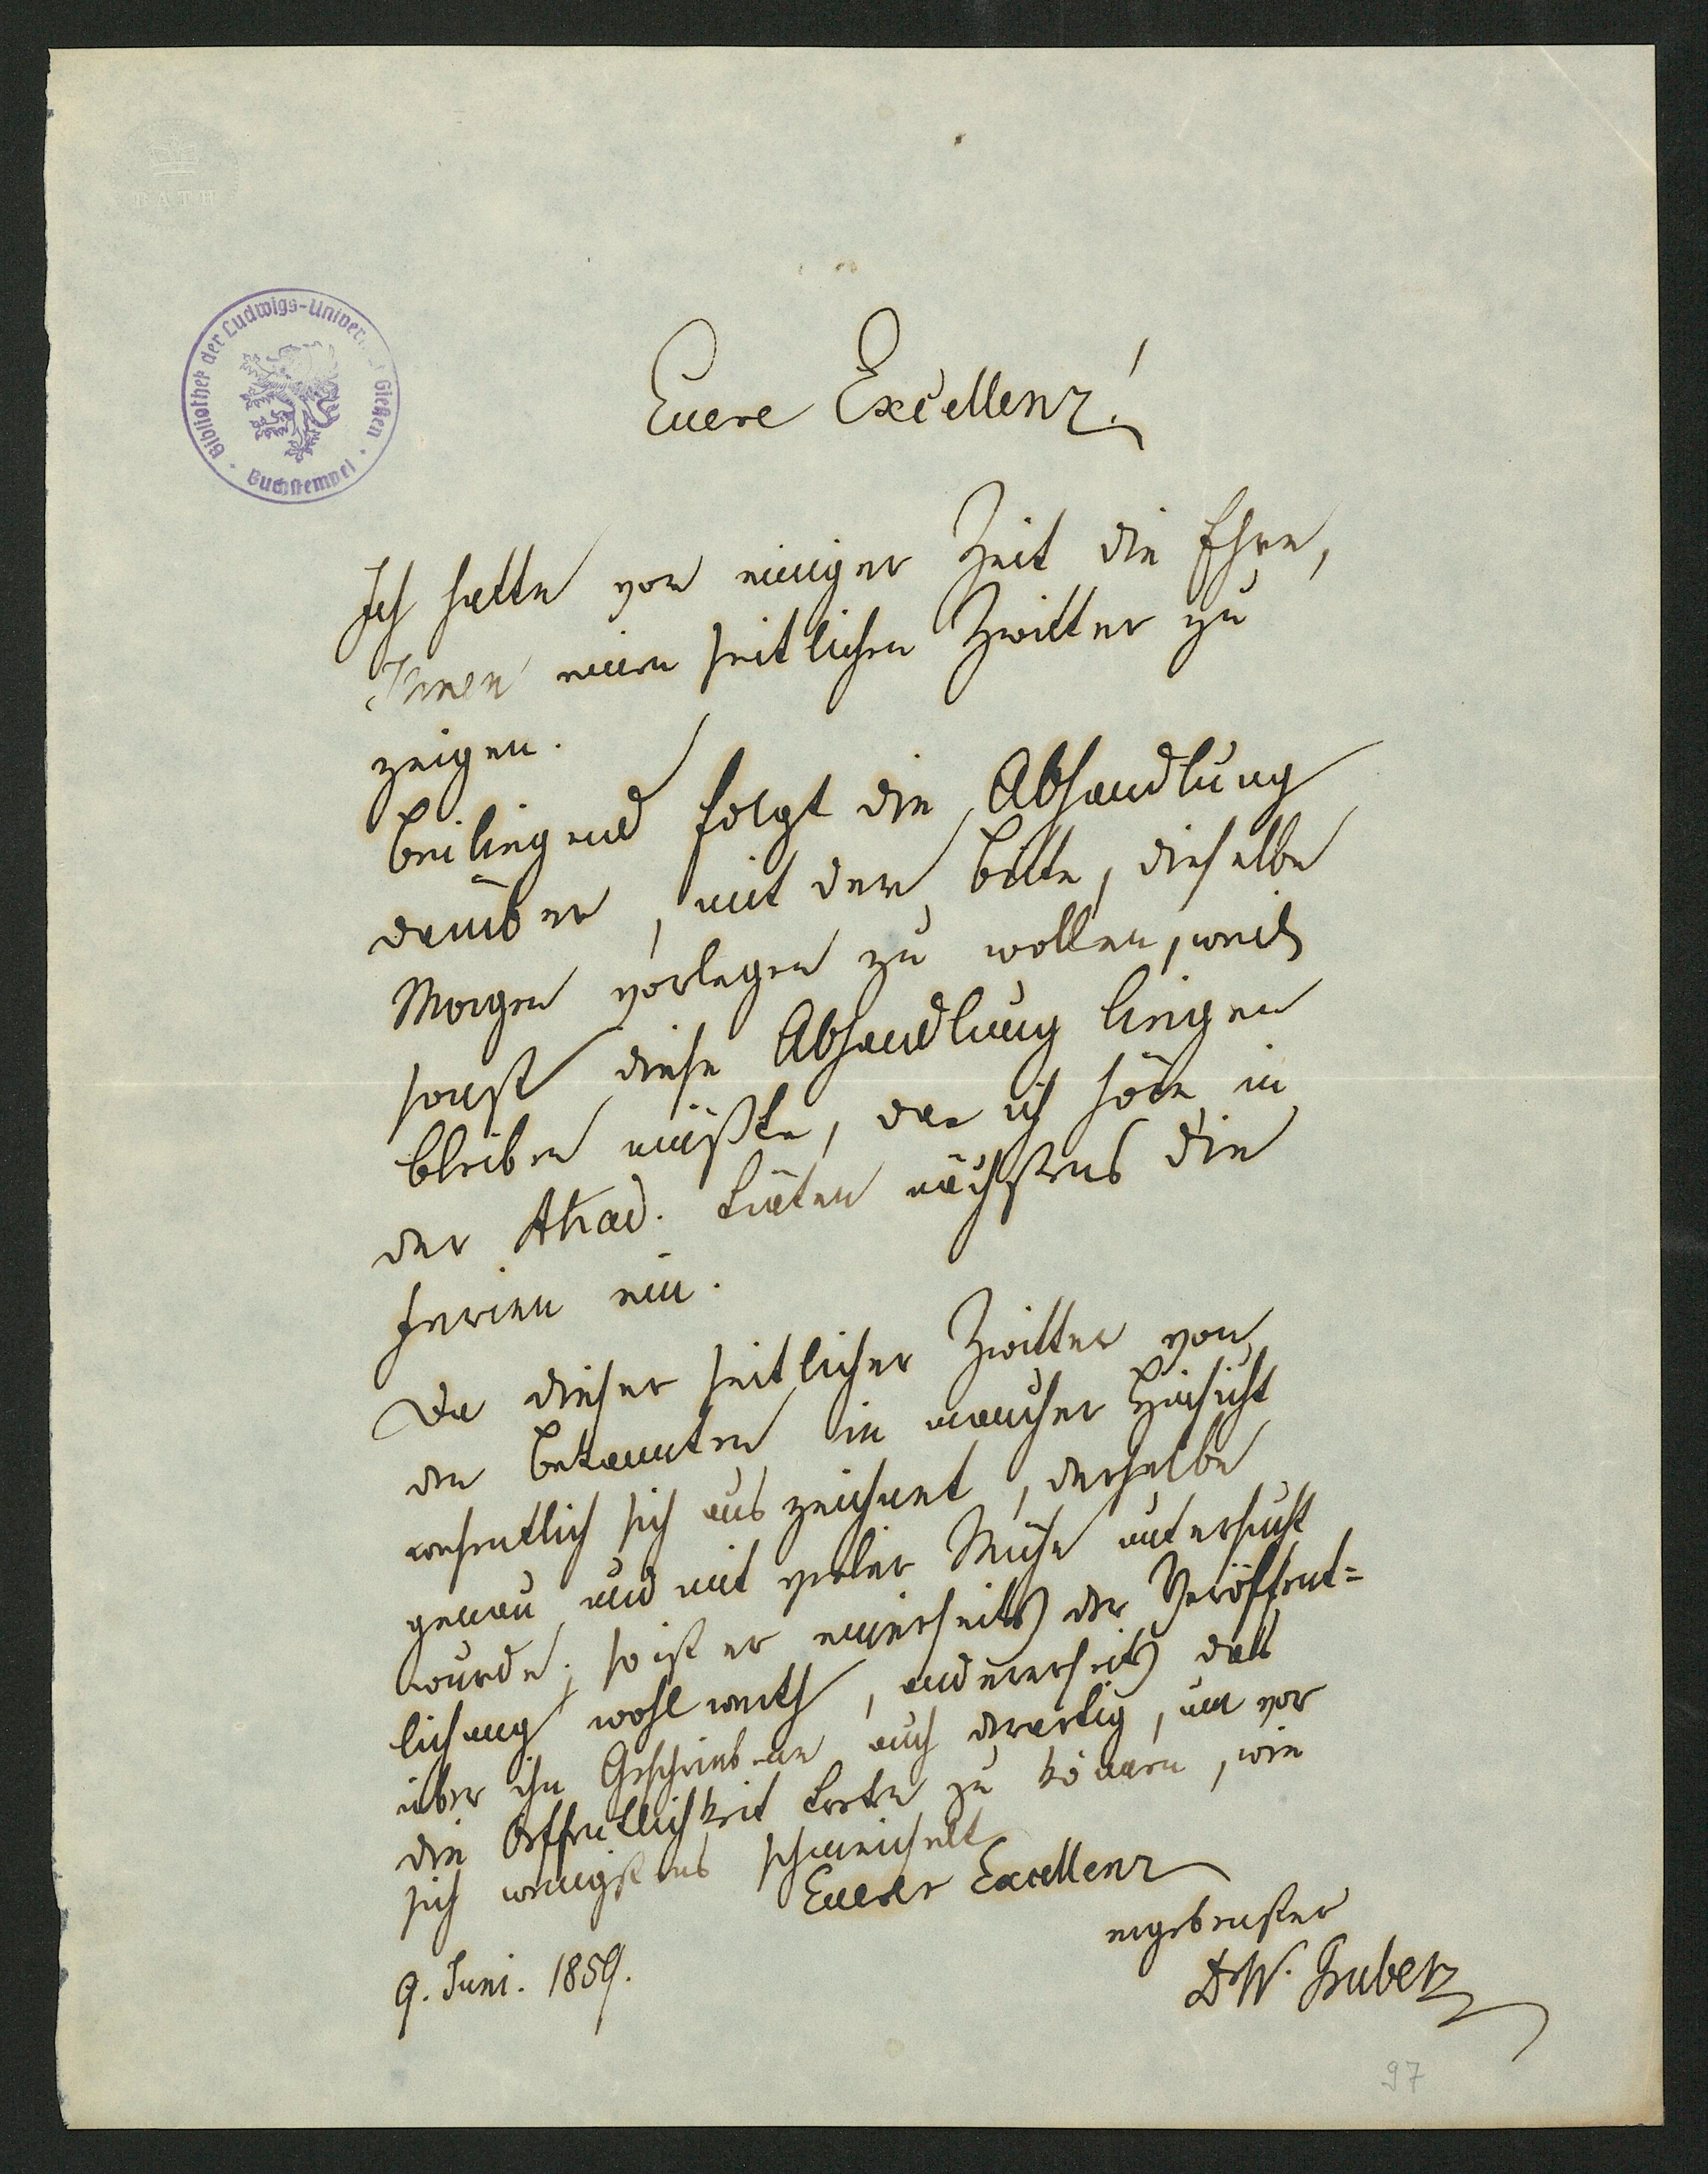 BATH
Bibliothek der Ludwigs-Univer Gießen
Buchstempel
Euere Excellenz!
Ich hatte vor einiger Zeit die Ehre,
Ihnen einen seitlichen Zwitter zu
zeigen.
Beiliegend folgt die Abhandlung
darüber, mit der Bitte, dieselbe
Morgen vorlegen zu wollen, weil
sonst diese Abhandlung liegen
bleiben müßte, da ich höre in
der Akad. träten nächstens die
Ferien ein.
Da dieser seitlicher Zwitter von
den bekannten in mancher Hinsicht
wesentlich sich auszeichnet, derselbe
genau und mit vieler Mühe untersucht
wurde; so ist er einerseits der Veröffent=
lichung wohl werth, andererseits das
über ihn Geschriebene auch derartig, um vor
die Öffentlichkeit treten zu können, wie
sich wenigstens schmeichelt
Euerer Excellenz
ergebenster
Dr W. Gruber
9. Juni. 1859.
97